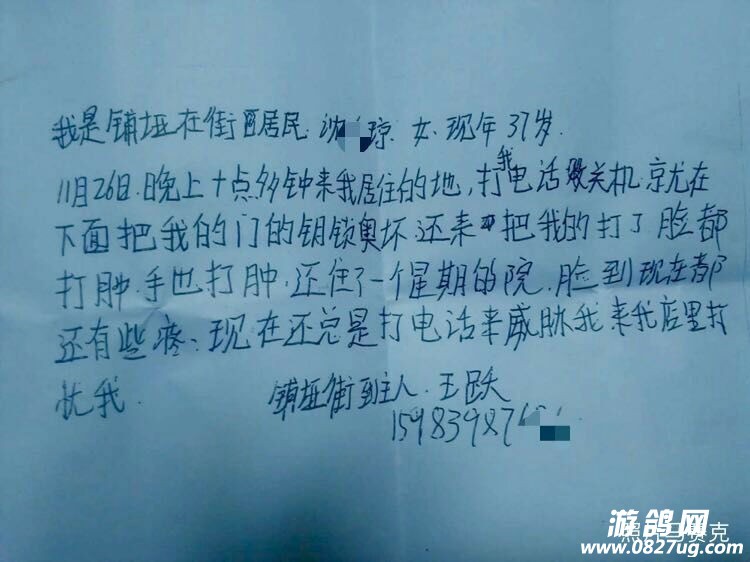 我是铺垭在街居民.沈 琼.女.现年37岁.
11月26日.晚上十点多钟来我居住的地,打我电话关机.就在
下面把我的门的钥锁奥坏还来把我的打了脸都
打肿.手也打肿.还住了一个星期的院.脸到现在都
还有些疼.现在还总是打电话来威胁我来我店里打
扰我.
铺垭街到主人.王跃
159839876
照片马赛克
游鸽网
www.0827ug.com